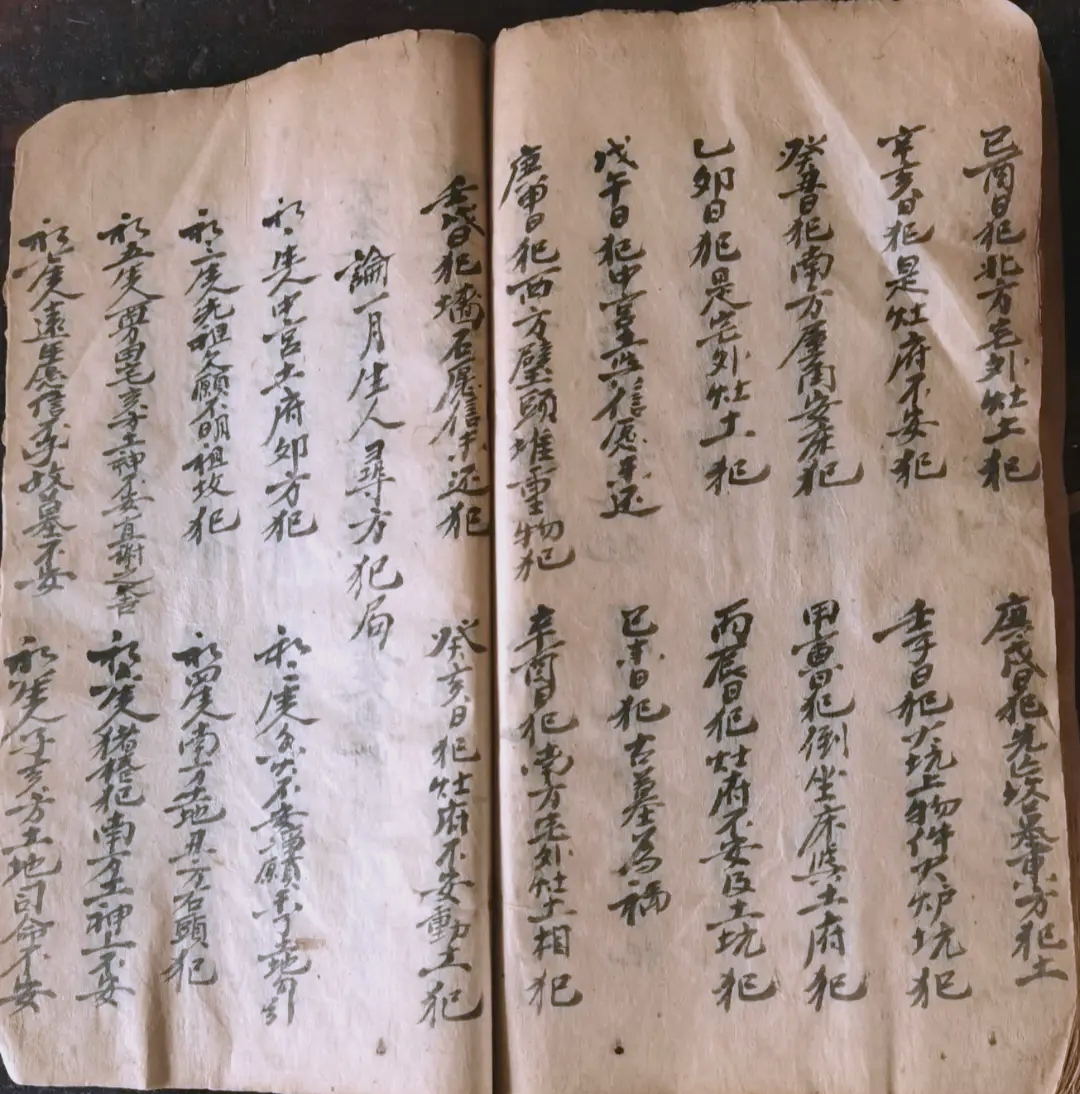 己酉日犯北方宅外灶土犯
庚戌日犯先亡坟墓東方犯土
辛亥日犯是灶府不安犯
壬子日犯大坑上物件火炉坑犯
癸丑日犯南方屋南安床犯
甲寅日犯倒坐床與土府犯
乙卯日犯是宅外灶土犯
丙辰日犯灶府不安及土坑犯
戊午日犯中宫土煞信愿未还
己未日犯古墓为祸
庚申日犯西方壁頭堆重物犯
辛酉日犯南方宅外灶土相犯
壬戌日犯墙石愿信未还犯
癸亥日犯灶府不安動土犯
論一月生人尋方犯局
初一生人中宫土府卯方犯
初二生人不安 願未了土地引
初三生先祖欠願不明祖坟犯
初四生人南方土地丑方石頭犯
初五生人 田宅亥子土神不安宜謝之吉
初六生人猪栏犯南方土神上不安
初 生人遠年愿信不 故墓不安
初 生人子亥方土地司命不安